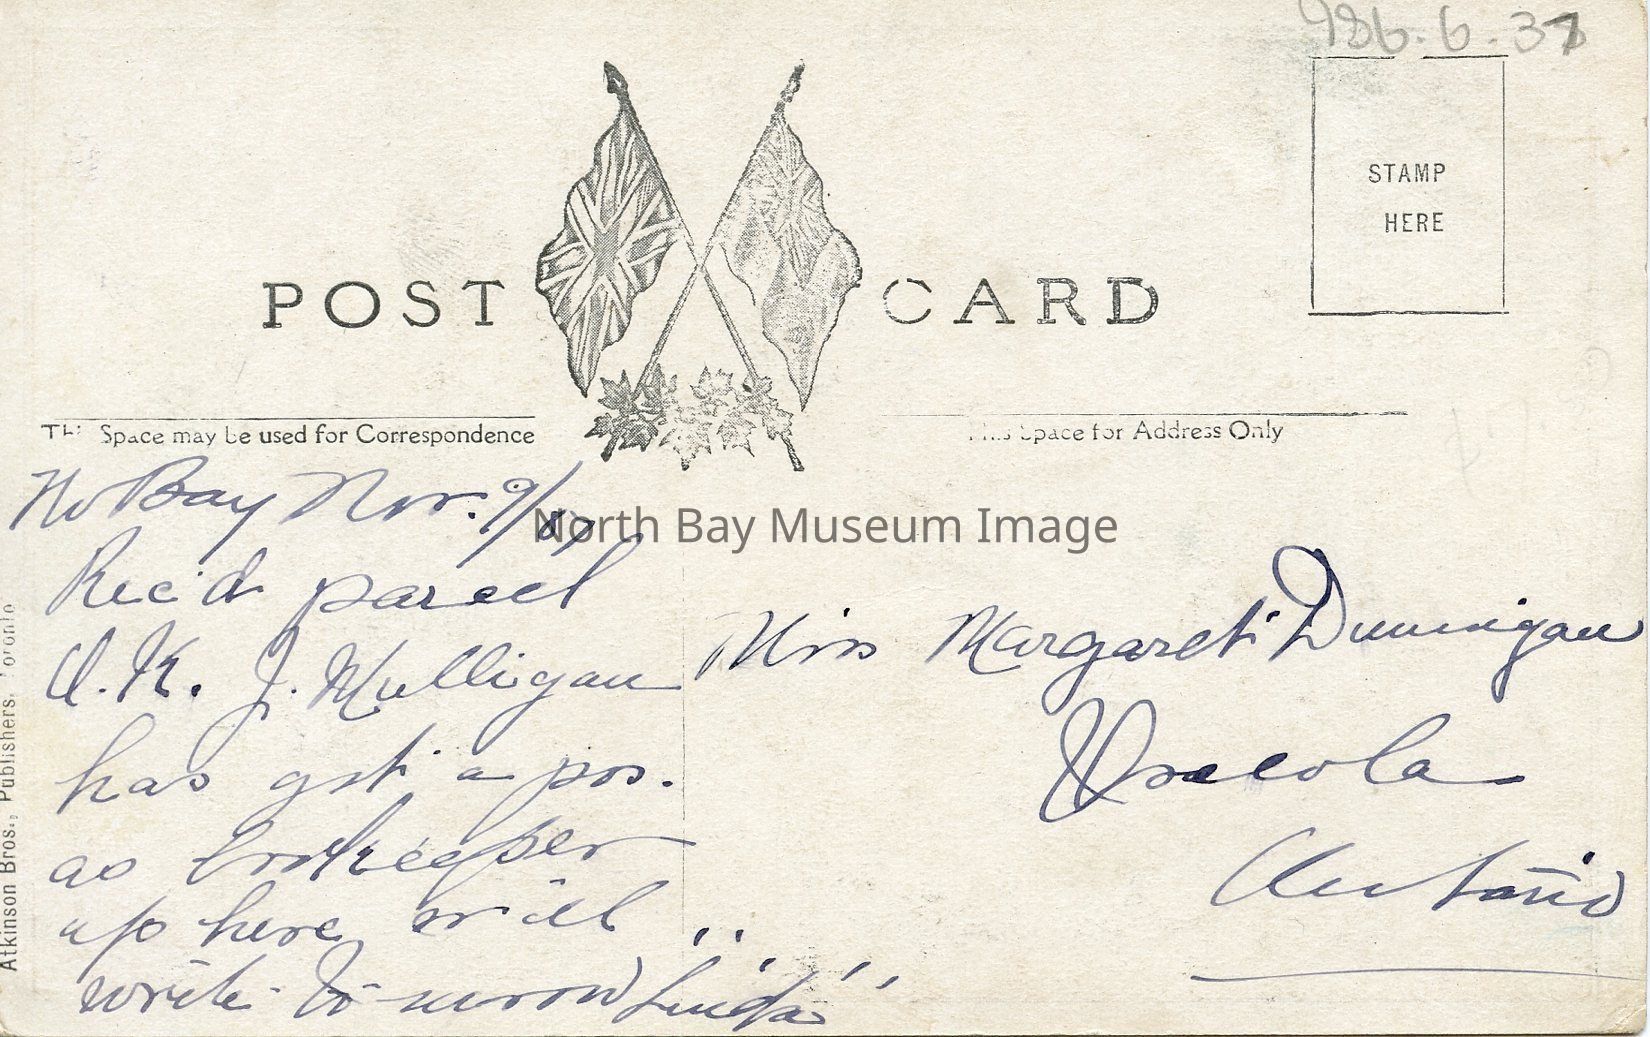 986.6.37
STAMP
HERE
POST CARD
This Space may be used for Correspondence
This Space for Address Only
No Bay Nov. 9/07
North Bay Museum Image
Rec'd parcel
O.K. J. Mulligan
has got a pos.
as bookeeper
up here will
write to morrow "Linda"
Miss Margaret Dunnigan
Ontario
Atkinson Bros., Publishers, Toronto